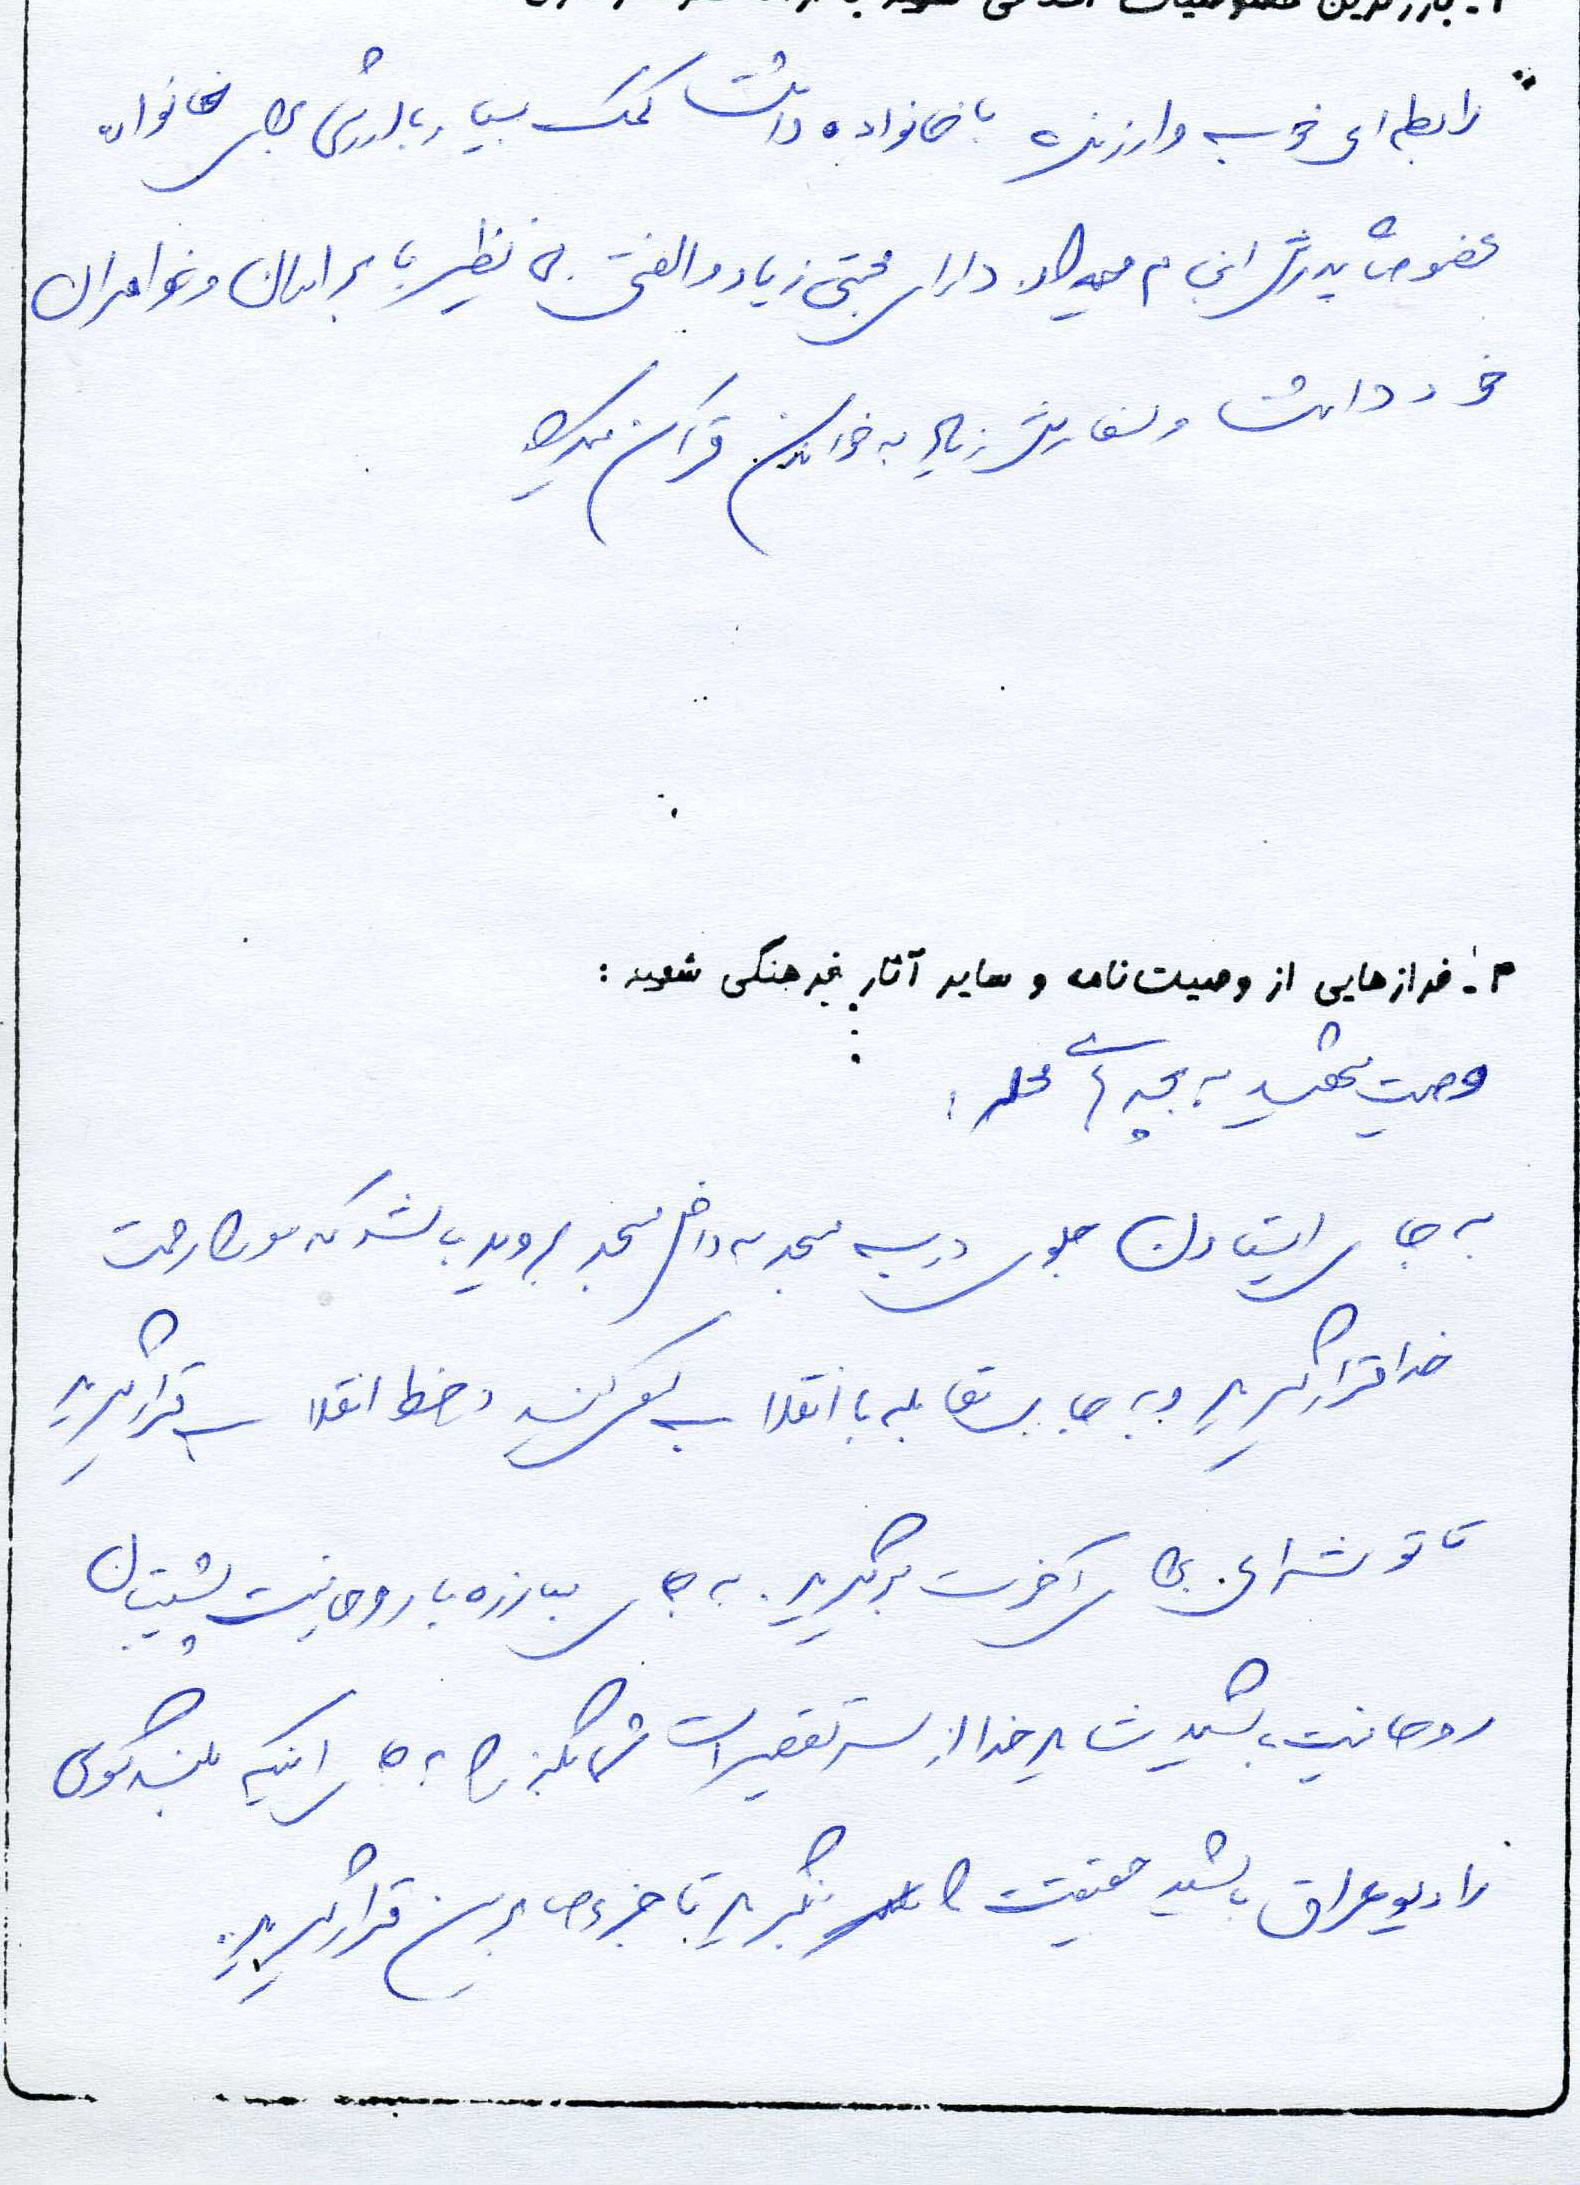 رابطه ای خوب و ارزنده با خانواده داشت کمک بسیار باارزشی برای خانواده
بخصوص پدرش انجام میداد. دارای محبتی زیاد و الفتی بی نظیر با برادران و خواهران
خود داشت و سفارش زیاد به خواندن قرآن میکرد
۳- فرازهایی از وصیت‌نامه و سایر آثار فرهنگی شهید :
وصیت شهید به بچه های محله :
به جای ایستادن جلوی درب مسجد به داخل مسجد بروید باشد که مورد رحمت
خدا قرار گیرید و به جای مقابله با انقلاب سعی کنید در خط انقلاب قرار گیرید
تا توشه ای برای آخرت برگیرید. به جای مبارزه با روحانیت پشتیبان
روحانیت باشید شاید خدا از سر تقصیرات شما بگذرد به جای اینکه بلندگوی
رادیو عراق باشید حقیقت را بنگرید تا جزء صابرین قرار گیرید.